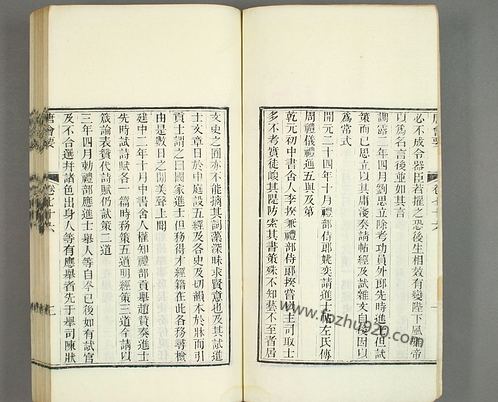 唐會要 卷七十六
必不成令器臣若擢之恐後生相效有變陛下風雅帝
以爲名言後並如其言
調露二年四月劉思立除考功員外郎先時進士但試
策而已思立以其庸淺奏請帖經及試雜文自後因以
爲常式
開元二十四年十月禮部侍郎姚奕請進士帖左氏傳
周禮儀禮通五與及第
乾元初中書舍人李揆兼禮部侍郎揆嘗以主司取士
多不考實徒峻其隄防索其書策殊不知藝不至者居
文史之囿亦不能摛其詞藻深昧求賢意也及其試進
士文章日於中庭設五經及各史及切韻本於牀而引
貢士謂之曰國家進士但務得才經籍在此各務尋檢
由是數日之間美聲上聞
建中二年十月中書舍人權知禮部貢舉趙贊奏進士
先時試詩賦各一篇時務策五道明經策三道今請以
箴論表贊代詩賦仍試策二道
三年四月敕禮部應進士舉人等自今已後如有試官
及不合選并諸色出身人等有應舉者先于舉司陳狀
唐會要 卷七十六
www.kongfz.com